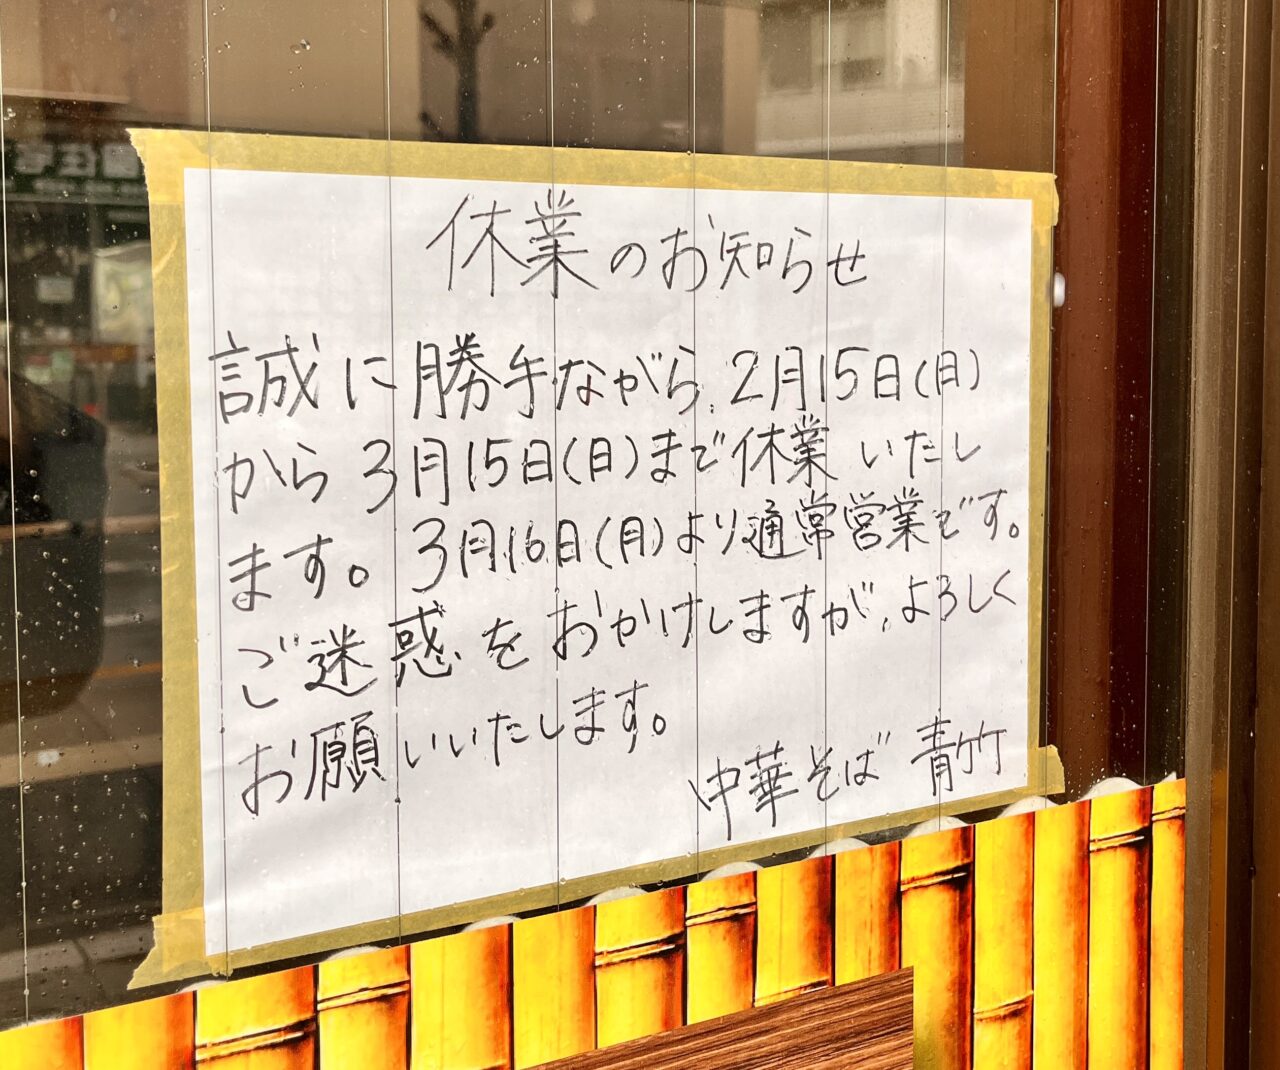 休業のお知らせ
誠に勝手ながら、2月15日(日)
から3月15日(日)まで休業いたし
ます。3月16日(月)より通常営業です。
ご迷惑をおかけしますが、よろしく
お願いいたします。
中華そば 青竹